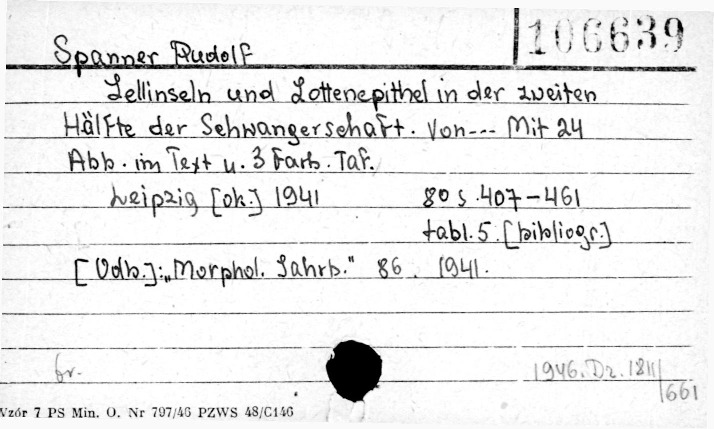 106639
Spanner Rudolf
Zellinseln und Zottenepithel in der zweiten
Hälfte der Schwangerschaft. Von--- Mit 24
Abb. im Text u. 3 Farb. Taf.
Leipzig [ok.] 1941 8° s. 407-461
tabl. 5. [bibliogr.]
[Odb.]: „Morphol. Jahrb." 86. 1941.
br. 1946. Dz. 1811/661
Wzór 7 PS Min. O. Nr 797/46 PZWS 48/C146